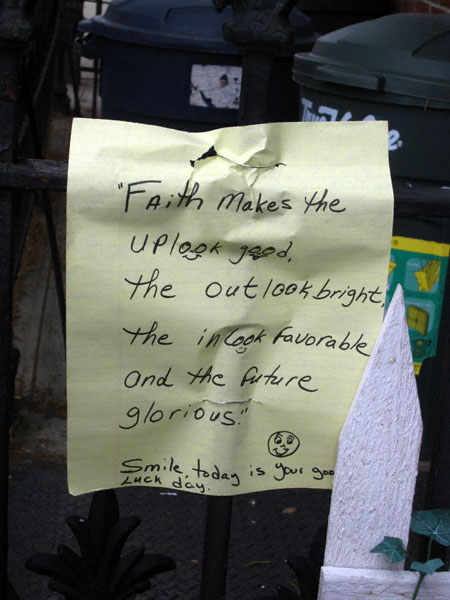 "FAith Makes the
UPlook good,
the outlook bright,
the inlook favorable
and the future
glorious."
Smile, today is your goo
Luck day.